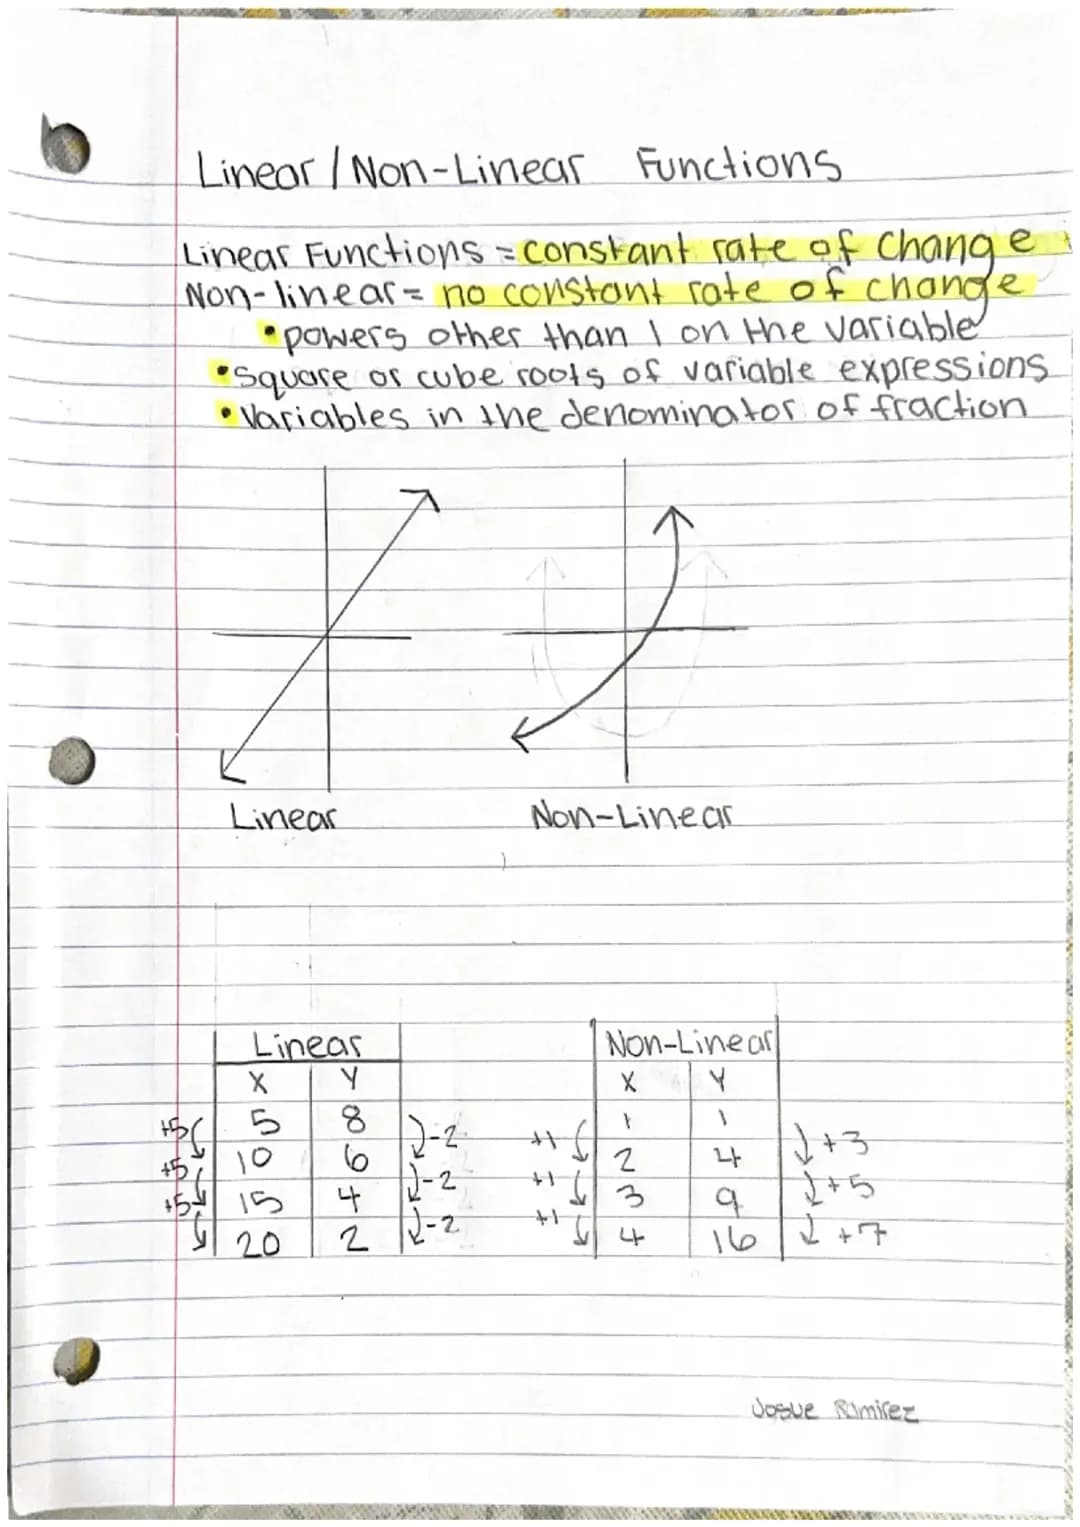 Linear / Non-Linear Functions
Linear Functions = constant rate of change
Non-linear = no constant rate of change
• powers other than 1 on the variable
• Square or cube roots of variable expressions
• Variables in the denominator of fraction
Linear Non-Linear
Linear Non-Linear
X Y X Y
5 8 1 1
+5 -2 +1 +3
10 6 2 4
+5 -2 +1 +5
15 4 3 9
+5 -2 +1 +7
20 2 4 16
Josue Ramirez